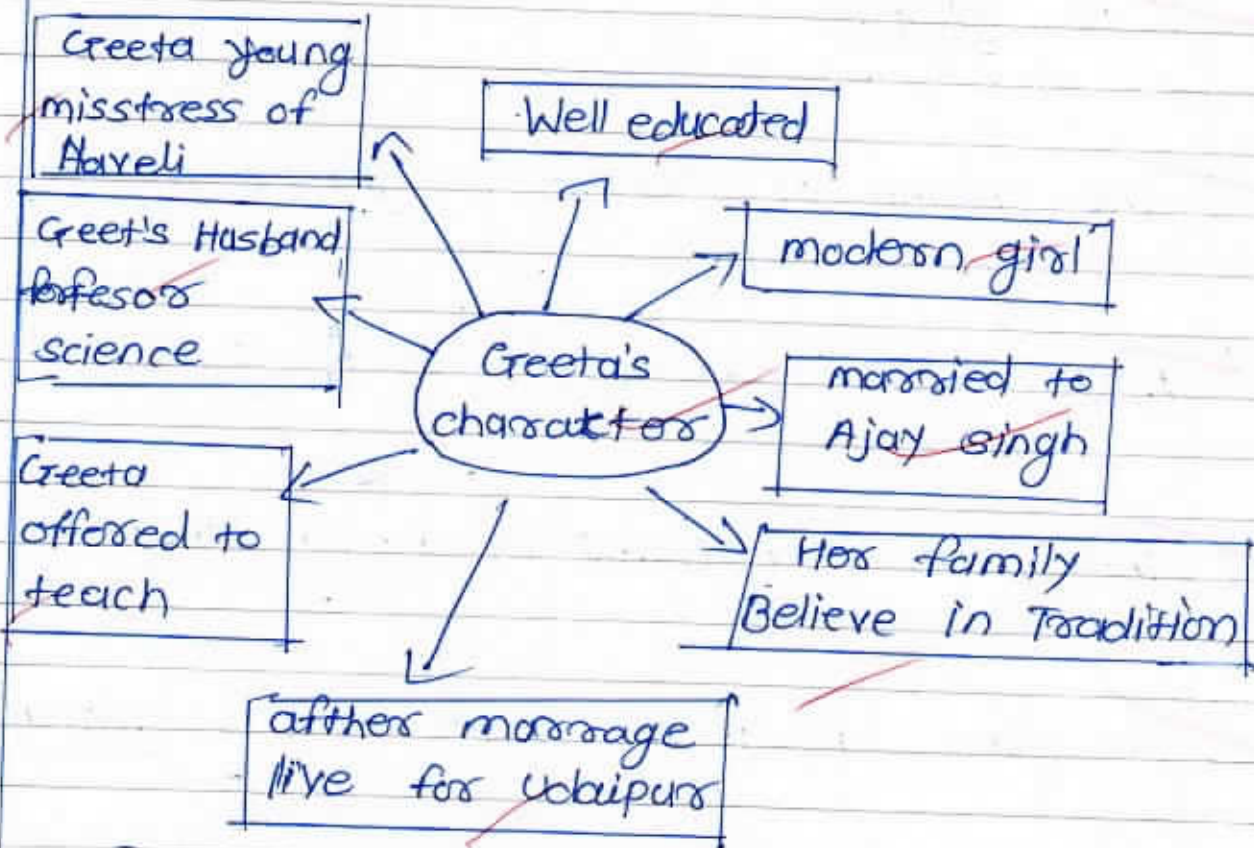 Geeta young
misstress of
Haveli
Well educated
Greet's Husband
modern girl
science
Geeta's
charakter
married to
Ajay singh
Geeta
offored to
teach
Her family
Believe in Tradition
afther marrage
live for Udaipur